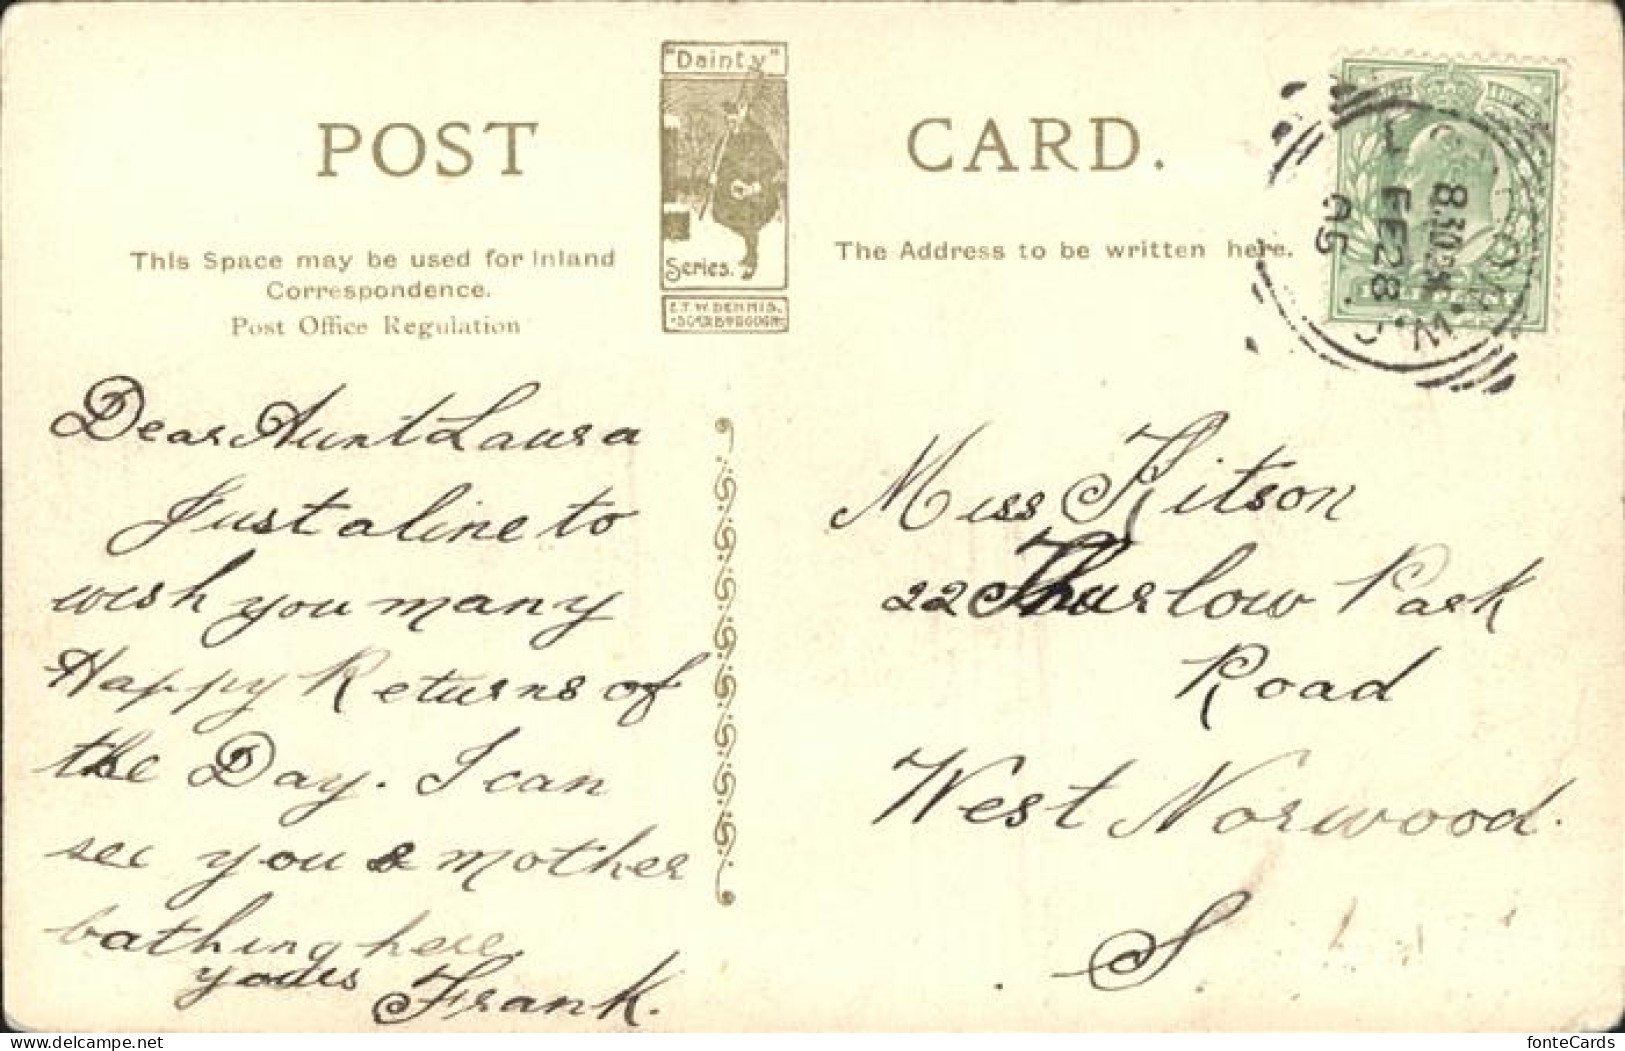 "Dainty"
Series.
E.T.W. DENNIS.
SCARBOROUGH
POST
CARD.
This Space may be used for Inland
Correspondence.
Post Office Regulation
The Address to be written here.
8.30
FE 28
05
Dear Aunt Laura
Just a line to
wish you many
Happy Returns of
the Day. I can
see you & mother
bathing here.
yours Frank.
Miss Kitson
22 Thurlow Park
Road
West Norwood.
S.
delcampe.net
fonteCards